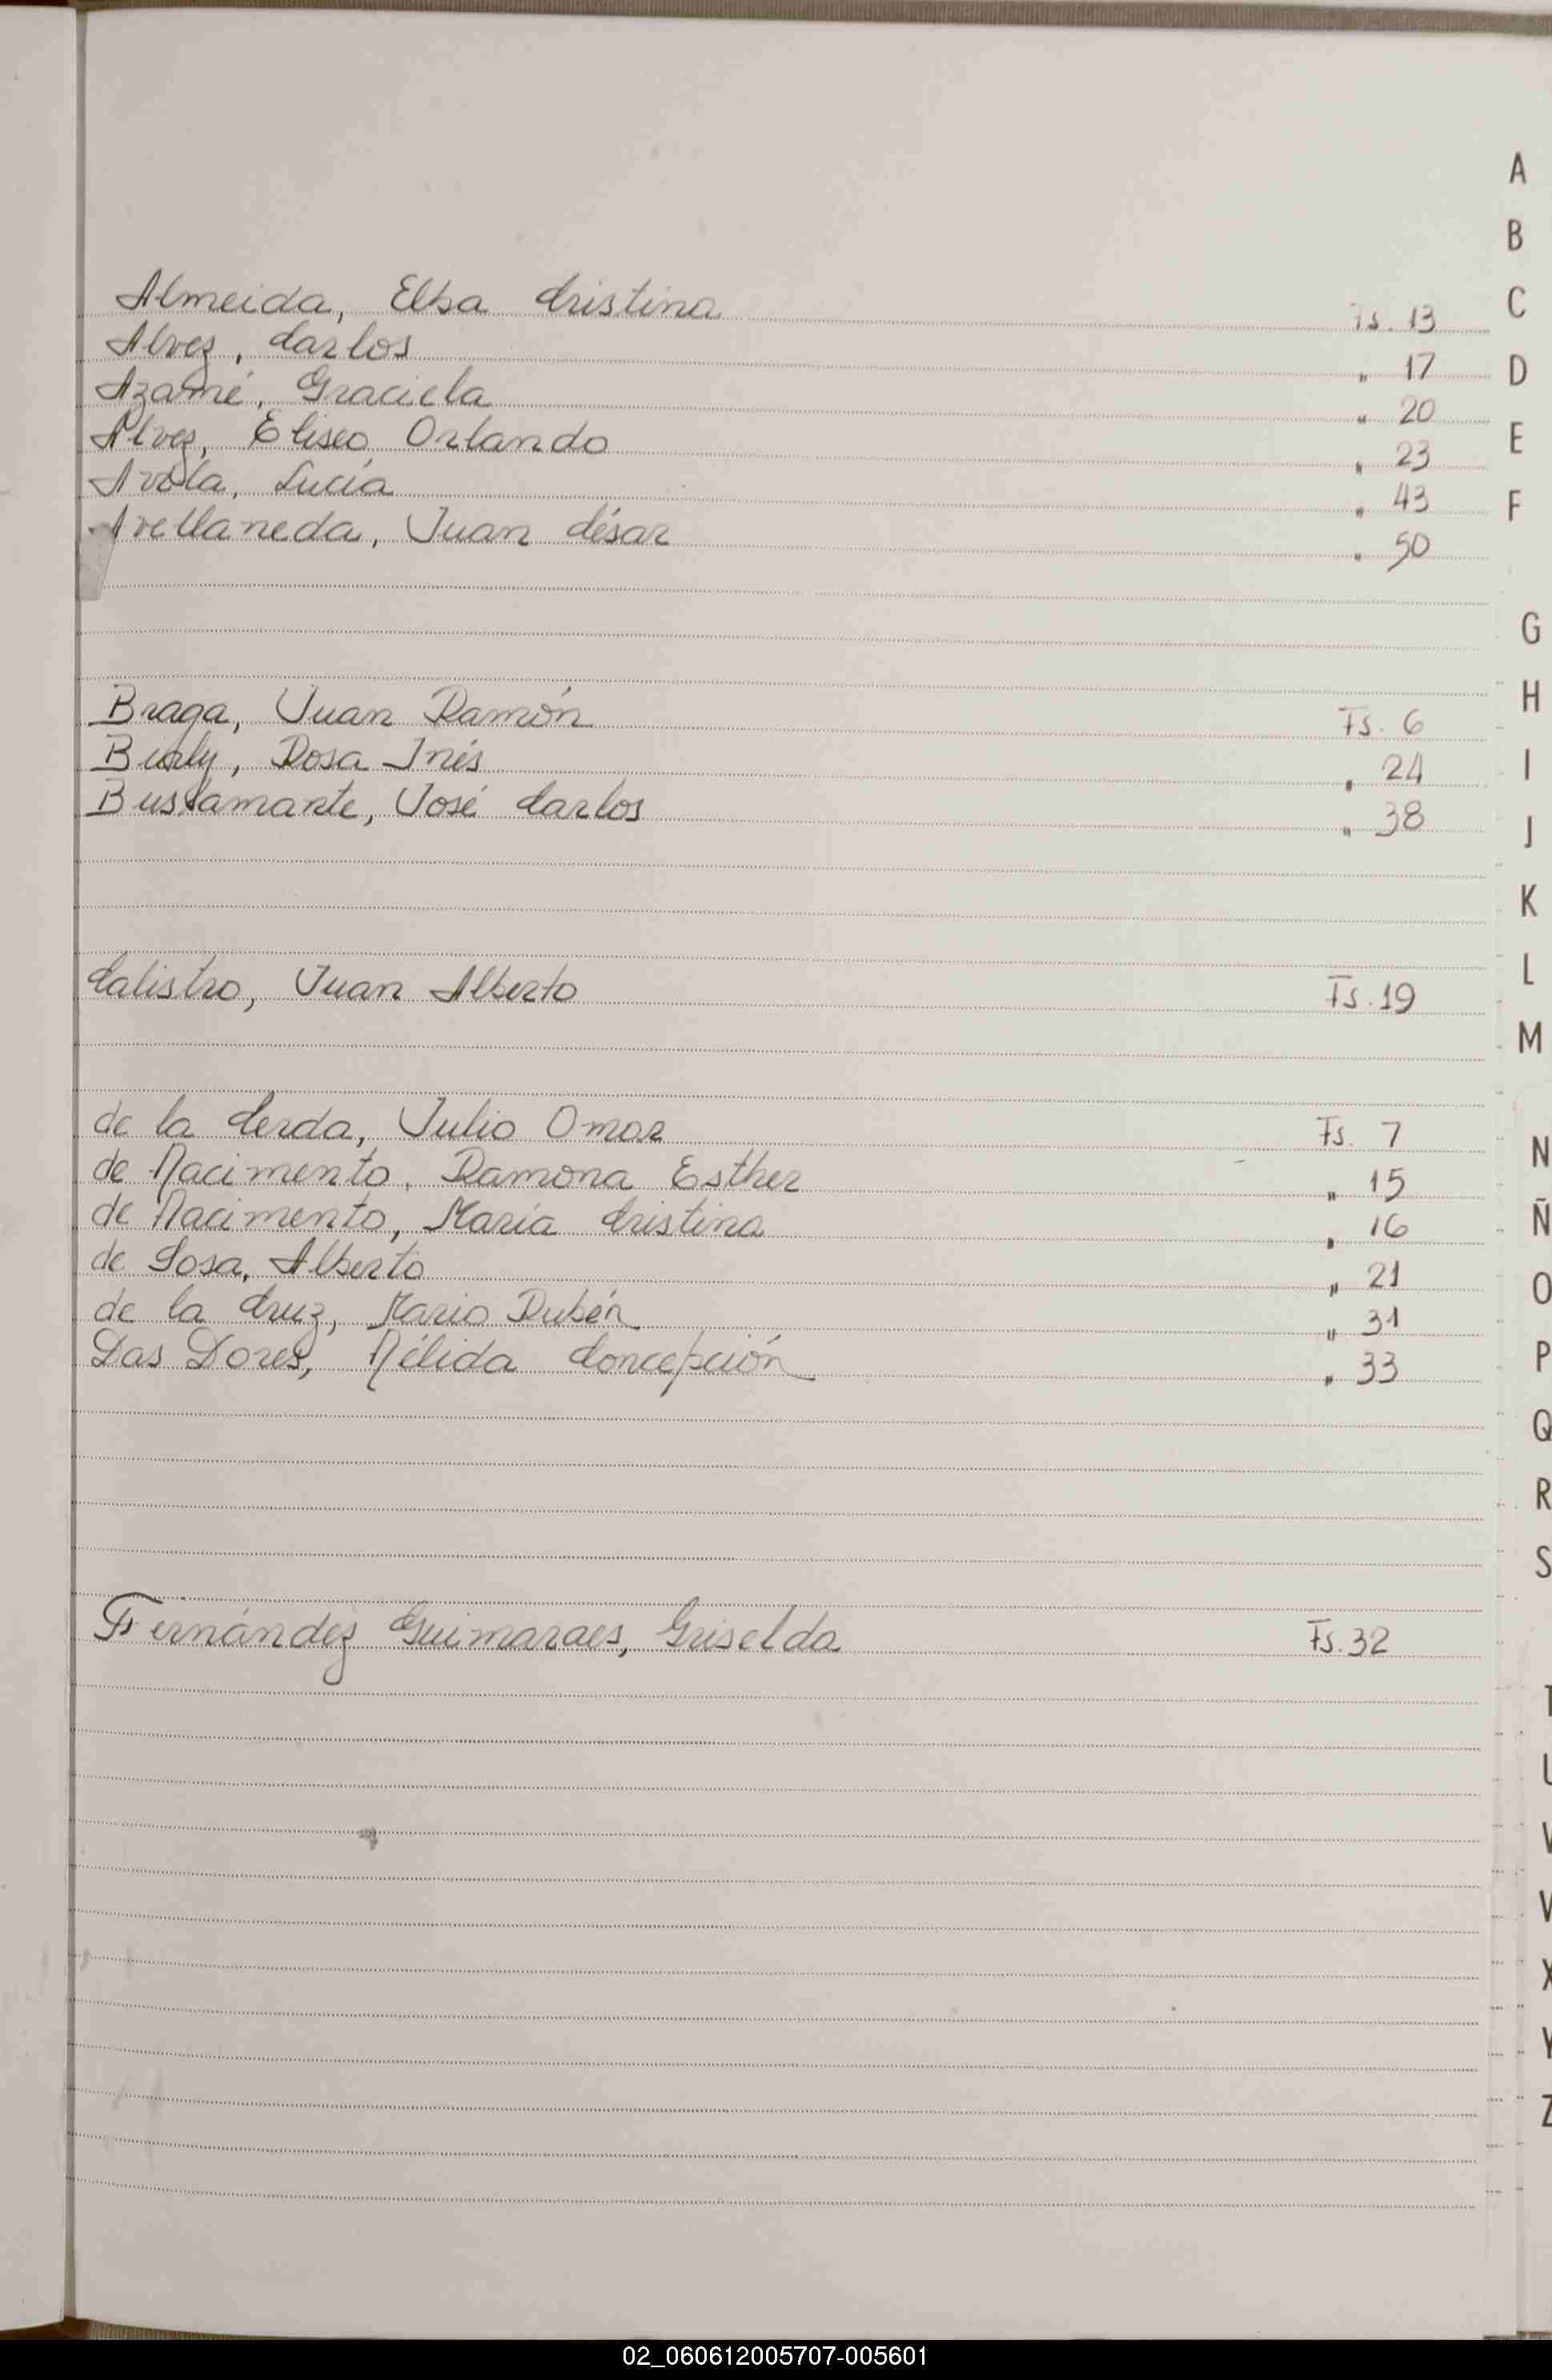 Almeida, Elsa Cristina Fs. 13
Alvez, Carlos " 17
Azamé, Graciela " 20
Alvez, Eliseo Orlando " 23
Avola, Lucía " 43
Avellaneda, Juan César " 50
Braga, Juan Ramón Fs. 6
Rosa Inés " 24
Bustamante, José Carlos " 38
Calistro, Juan Alberto Fs. 19
de la Cerda, Julio Omar Fs. 7
de Nacimento, Ramona Esther " 15
de Nacimento, María Cristina " 16
de Sosa, Alberto " 21
de la Cruz, Mario Rubén " 31
Das Dores, Nélida Concepción " 33
Fernández Guimaraes, Griselda Fs. 32
A
B
C
D
E
F
G
H
I
J
K
L
M
N
Ñ
O
P
Q
R
S
T
U
V
W
X
Y
Z
02_060612005707-005601